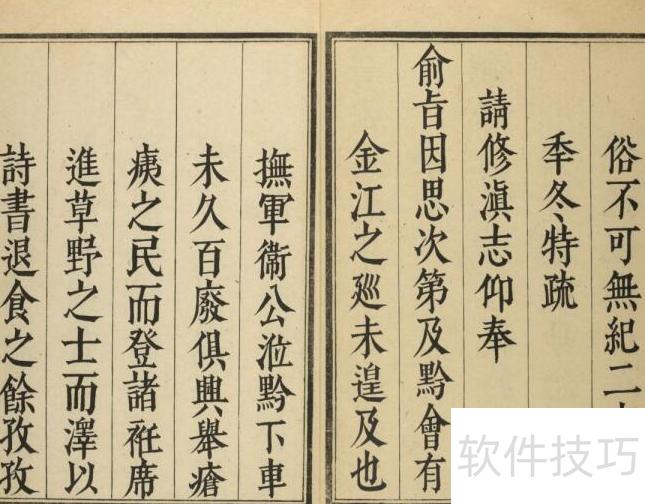 俗不可無紀二
季冬特疏
請修滇志仰奉
俞旨因思次第及黔會有
金江之廵未遑及也
撫軍衞公涖黔下車
未久百廢俱興舉瘡
痍之民而登諸袵席
進草野之士而澤以
詩書退食之餘孜孜
软件技巧